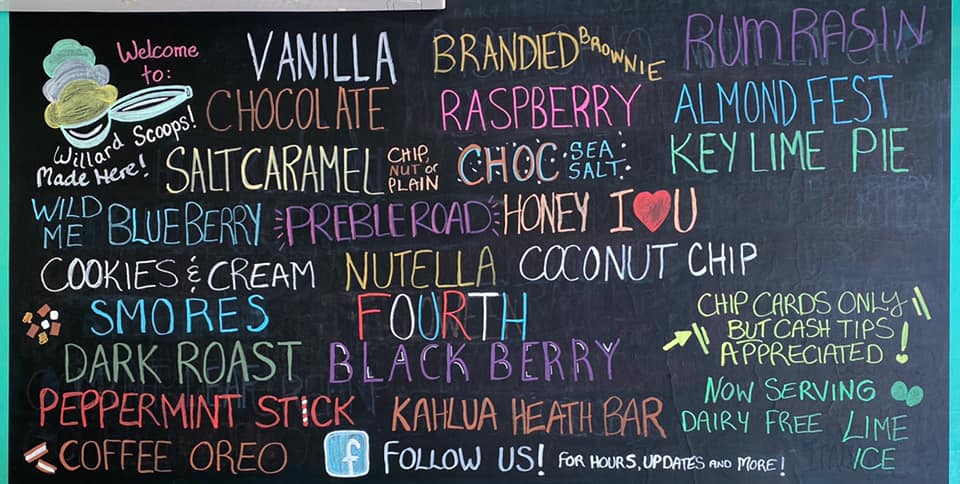 Welcome to:
Willard Scoops!
Made Here!
VANILLA
BRANDIED BROWNIE
RUM RASIN
CHOCOLATE
RASPBERRY
ALMOND FEST
SALT CARAMEL CHIP, NUT or PLAIN
CHOC SEA SALT
KEY LIME PIE
WILD ME BLUEBERRY
PREBLE ROAD
HONEY I ♥ U
COOKIES & CREAM
NUTELLA
COCONUT CHIP
SMORES
FOURTH
CHIP CARDS ONLY
BUT CASH TIPS
APPRECIATED!
DARK ROAST
BLACK BERRY
NOW SERVING
DAIRY FREE LIME ICE
PEPPERMINT STICK
KAHLUA HEATH BAR
COFFEE OREO
f FOLLOW US! FOR HOURS, UPDATES AND MORE!